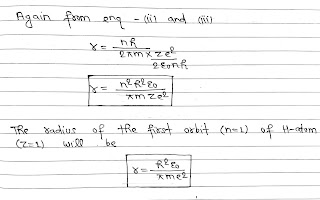 Again from enq - (ii) and (iii)
r = nh / 2πm × Ze² / 2ε₀nh
r = n²h²ε₀ / πmZe²
The radius of the first orbit (n=1) of H-atom
(Z=1) will be
r = h²ε₀ / πme²